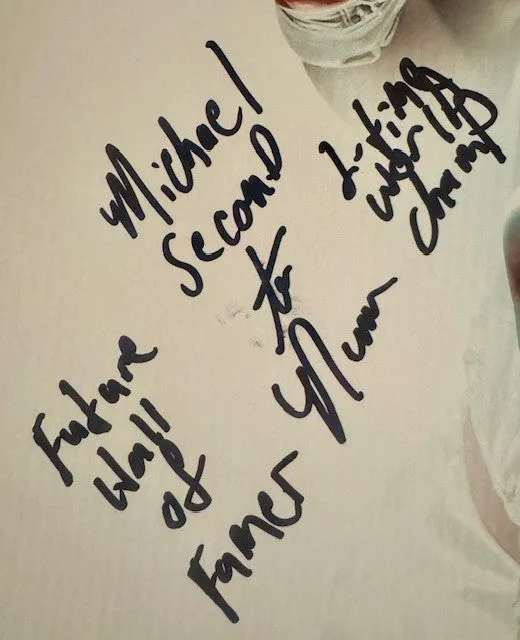 Michael
Second
to
Nunn
2-time
World
Champ
Future
Hall
of
Famer